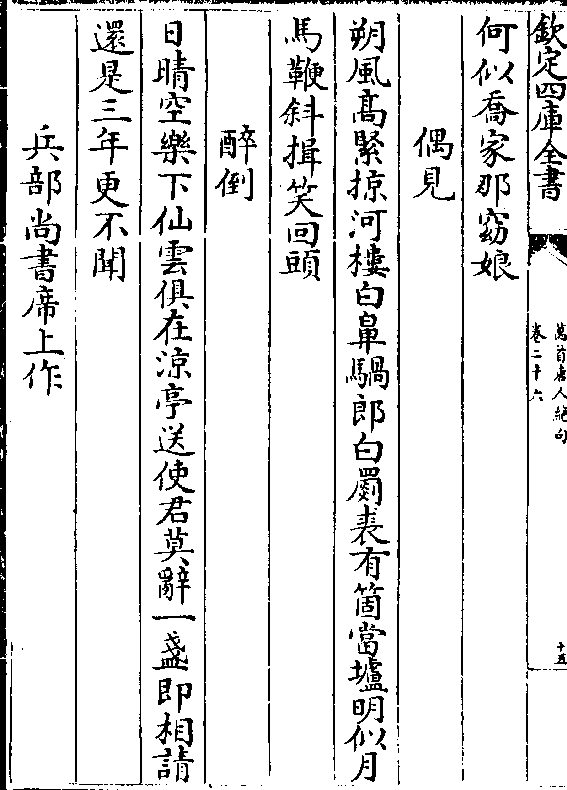 欽定四庫全書
萬首唐人絶句
卷二十六
十五
何似喬家那窈娘
偶見
朔風髙緊掠河樓白鼻騧郎白罽裘有箇當壚明似月
馬鞭斜揖笑回頭
醉倒
日晴空樂下仙雲俱在涼亭送使君莫辭一盞即相請
還是三年更不聞
兵部尚書席上作